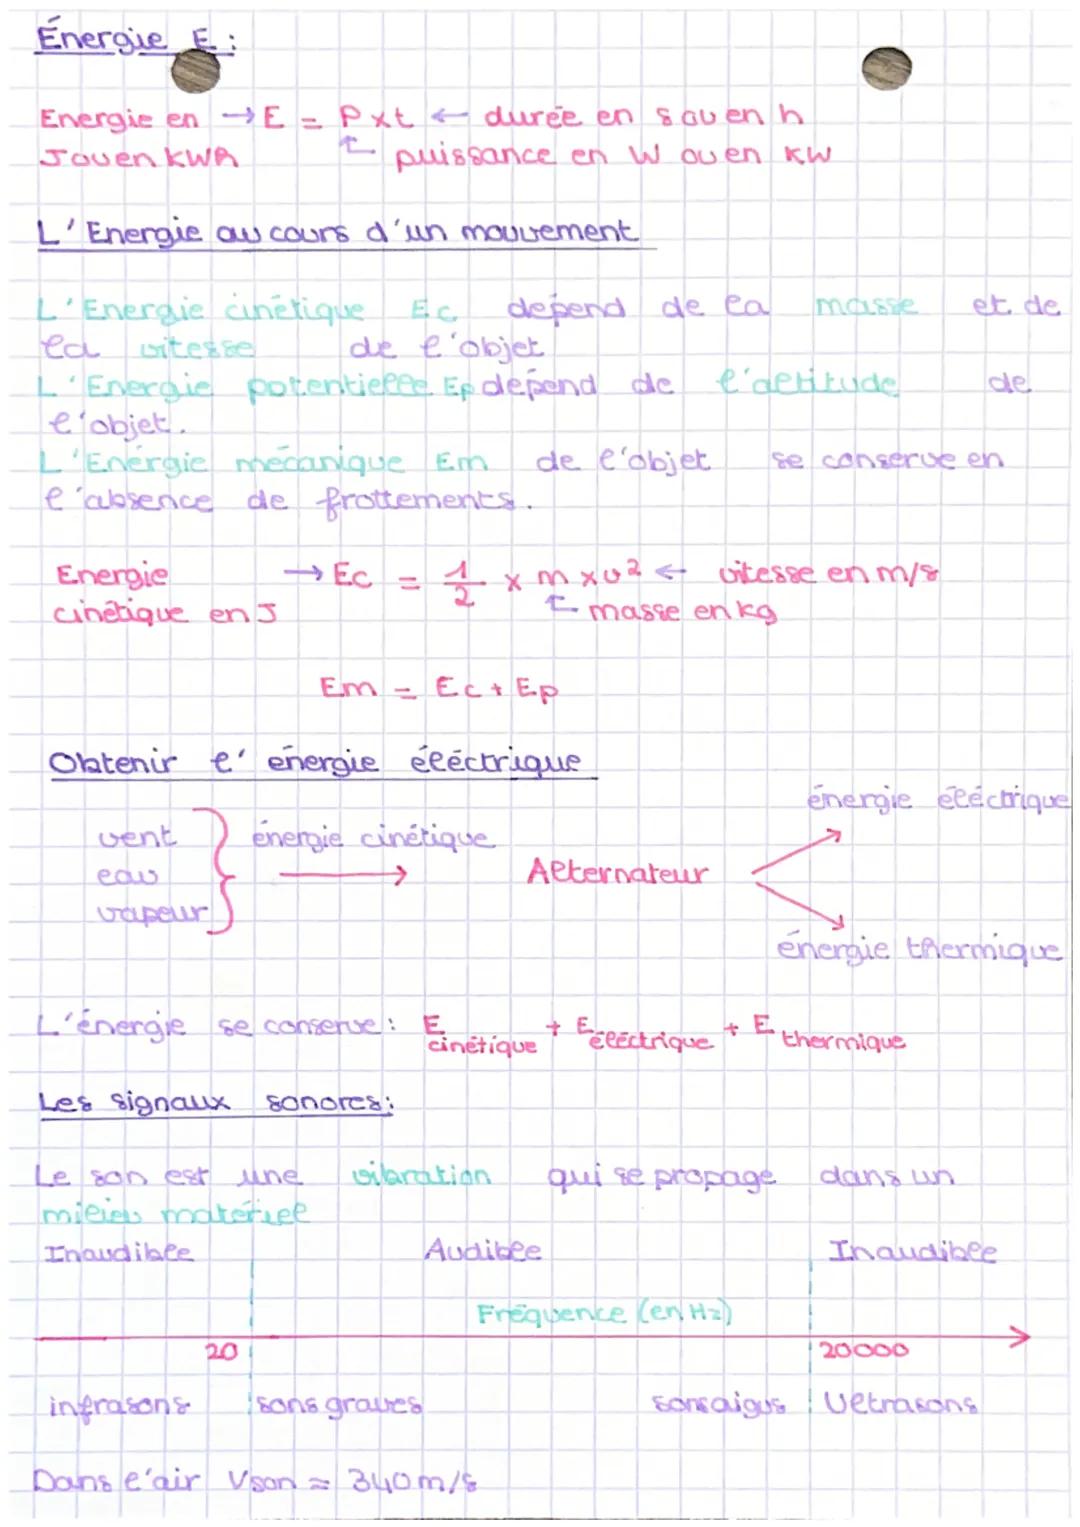 Énergie E :
Energie en → E = P x t ← durée en s ou en h
J ou en KWh
puissance en W ou en KW
L'Energie au cours d'un mouvement
L'Energie cinétique Ec dépend de la masse et de
la vitesse de l'objet
L'Energie potentielle Ep dépend de l'altitude de
l'objet.
L'Energie mécanique Em de l'objet se conserve en
l'absence de frottements.
Energie → Ec = 1/2 x m x v² ← vitesse en m/s
cinétique en J
masse en kg
Em = Ec + Ep
Obtenir l'énergie éléctrique
énergie éléctrique
vent
énergie cinétique
eau
Alternateur
vapeur
énergie thermique
L'énergie se conserve : E cinétique + E éléctrique + E thermique
Les signaux sonores :
Le son est une vibration qui se propage dans un
milieu matériel
Inaudible Audible Inaudible
Fréquence (en Hz)
20 20000
infrasons sons graves sons aigus Ultrasons
Dans l'air Vson ≈ 340 m/s